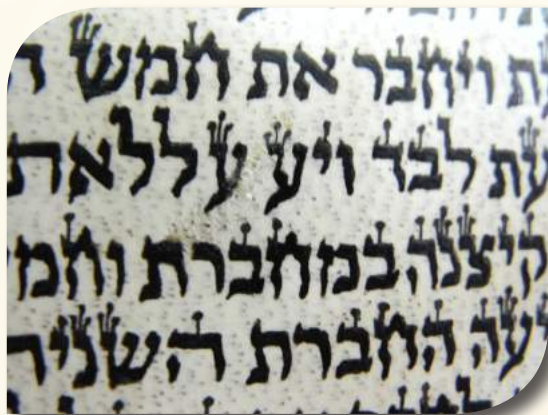 ת ויחבר את חמש ה
עת לבד ויע עללאת
קיצנה במחברת וחמ
יעה החברת השני